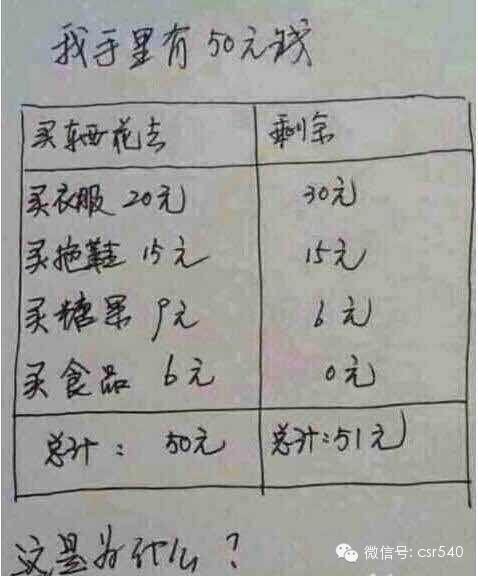 我手里有50元钱
买东西花去 剩余
买衣服 20元 30元
买拖鞋 15元 15元
买糖果 9元 6元
买食品 6元 0元
总计: 50元 总计:51元
这是为什么?
微信号: csr540